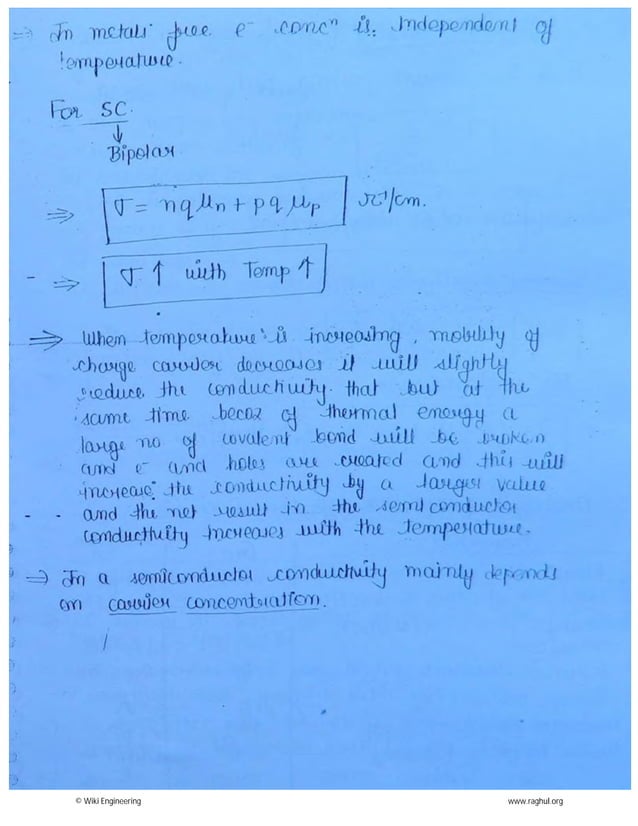 ⇒ In metals free e⁻ concⁿ is independent of
temperature.
For SC.
↓
Bipolar
⇒ σ = nqμn + pqμp Ω⁻¹/cm.
⇒ σ ↑ with Temp ↑
⇒ When temperature is increasing, mobility of
charge carrier decreases it will slightly
reduce the conductivity. that but at the
same time becoz of thermal energy a
large no of covalent bond will be broken
and e⁻ and holes are created and this will
increase the conductivity by a larger value
and the net result in the semiconductor
conductivity increases with the temperature.
⇒ In a semiconductor conductivity mainly depends
on carrier concentration.
© Wiki Engineering
www.raghul.org